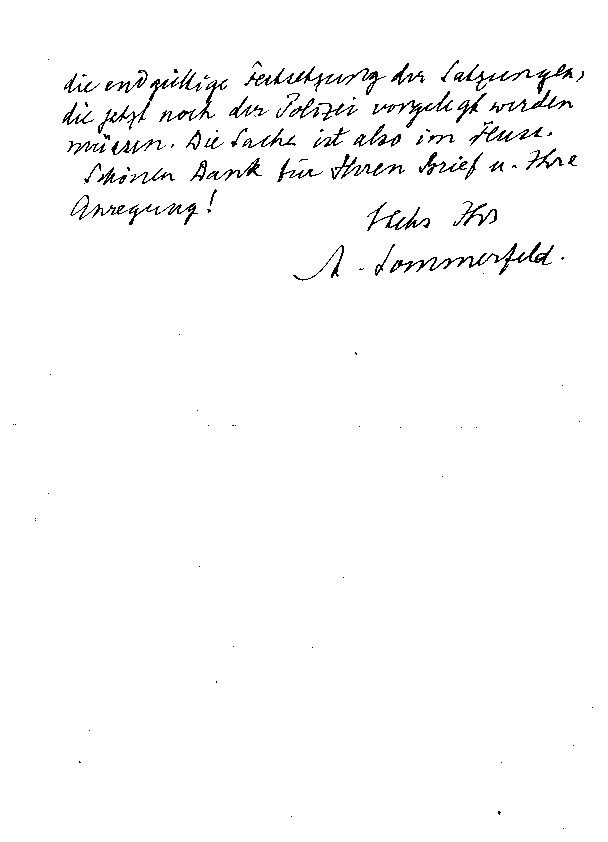 die endgültige Festsetzung der Satzungen,
die jetzt noch der Polizei vorgelegt werden
müssen. Die Sache ist also im Fluss.
Schönen Dank für Ihren Brief u. Ihre
Anregung!
Stets Ihr
A. Sommerfeld.